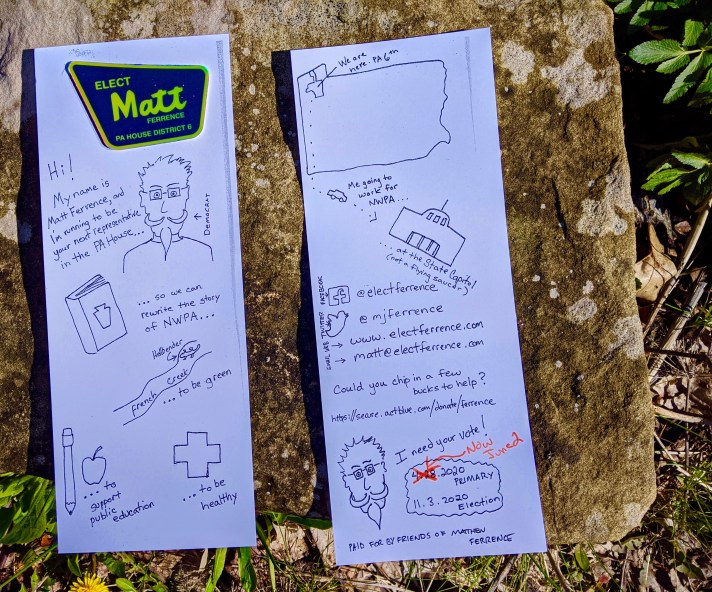 ELECT
Matt
FERRENCE
PA HOUSE DISTRICT 6
Hi!
My name is
Matt Ferrence, and
I'm running to be
your next representative
in the PA House...
DEMOCRAT
... so we can
rewrite the story
of NWPA...
Hellbender
French Creek
... to be green
... to
support
public
education
... to be
healthy
We are
here. PA 6th
Me going to
work for
NWPA...
... at the State Capitol
(not a flying saucer)
FACEBOOK
@electferrence
TWITTER
@mjferrence
WEB
www.electferrence.com
EMAIL
matt@electferrence.com
Could you chip in a few
bucks to help?
https://secure.actblue.com/donate/ferrence
I need your vote!
NOW
June 2
.2020
PRIMARY
11.3.2020
Election
PAID FOR BY FRIENDS OF MATTHEW
FERRENCE